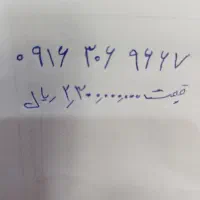 ۰۹۱۶ ۳۰۶ ۹۶۶۷
قیمت ۲٫۳۰۰٫۰۰۰٫۰۰۰ ریال